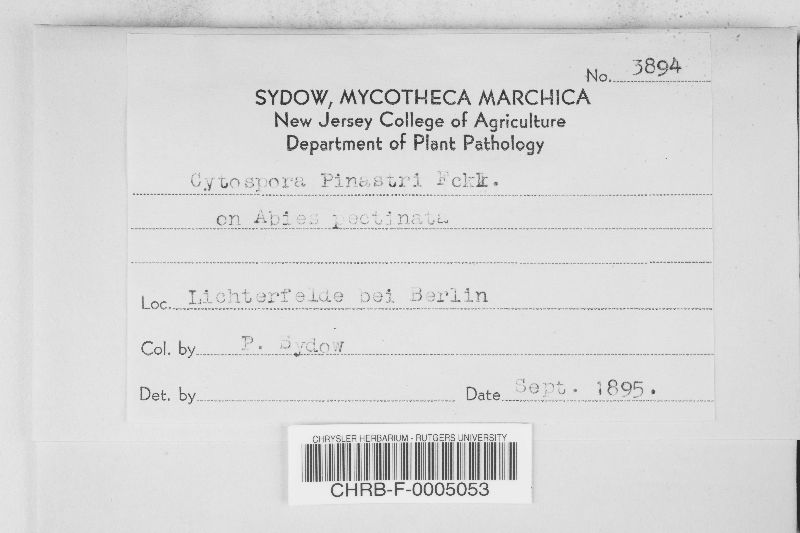 No. 3894
SYDOW, MYCOTHECA MARCHICA
New Jersey College of Agriculture
Department of Plant Pathology
Cytospora Pinastri Fckl.
on Abies pectinata
Loc. Lichterfelde bei Berlin
Col. by P. Sydow
Det. by Date Sept. 1895.
CHRYSLER HERBARIUM - RUTGERS UNIVERSITY
CHRB-F-0005053